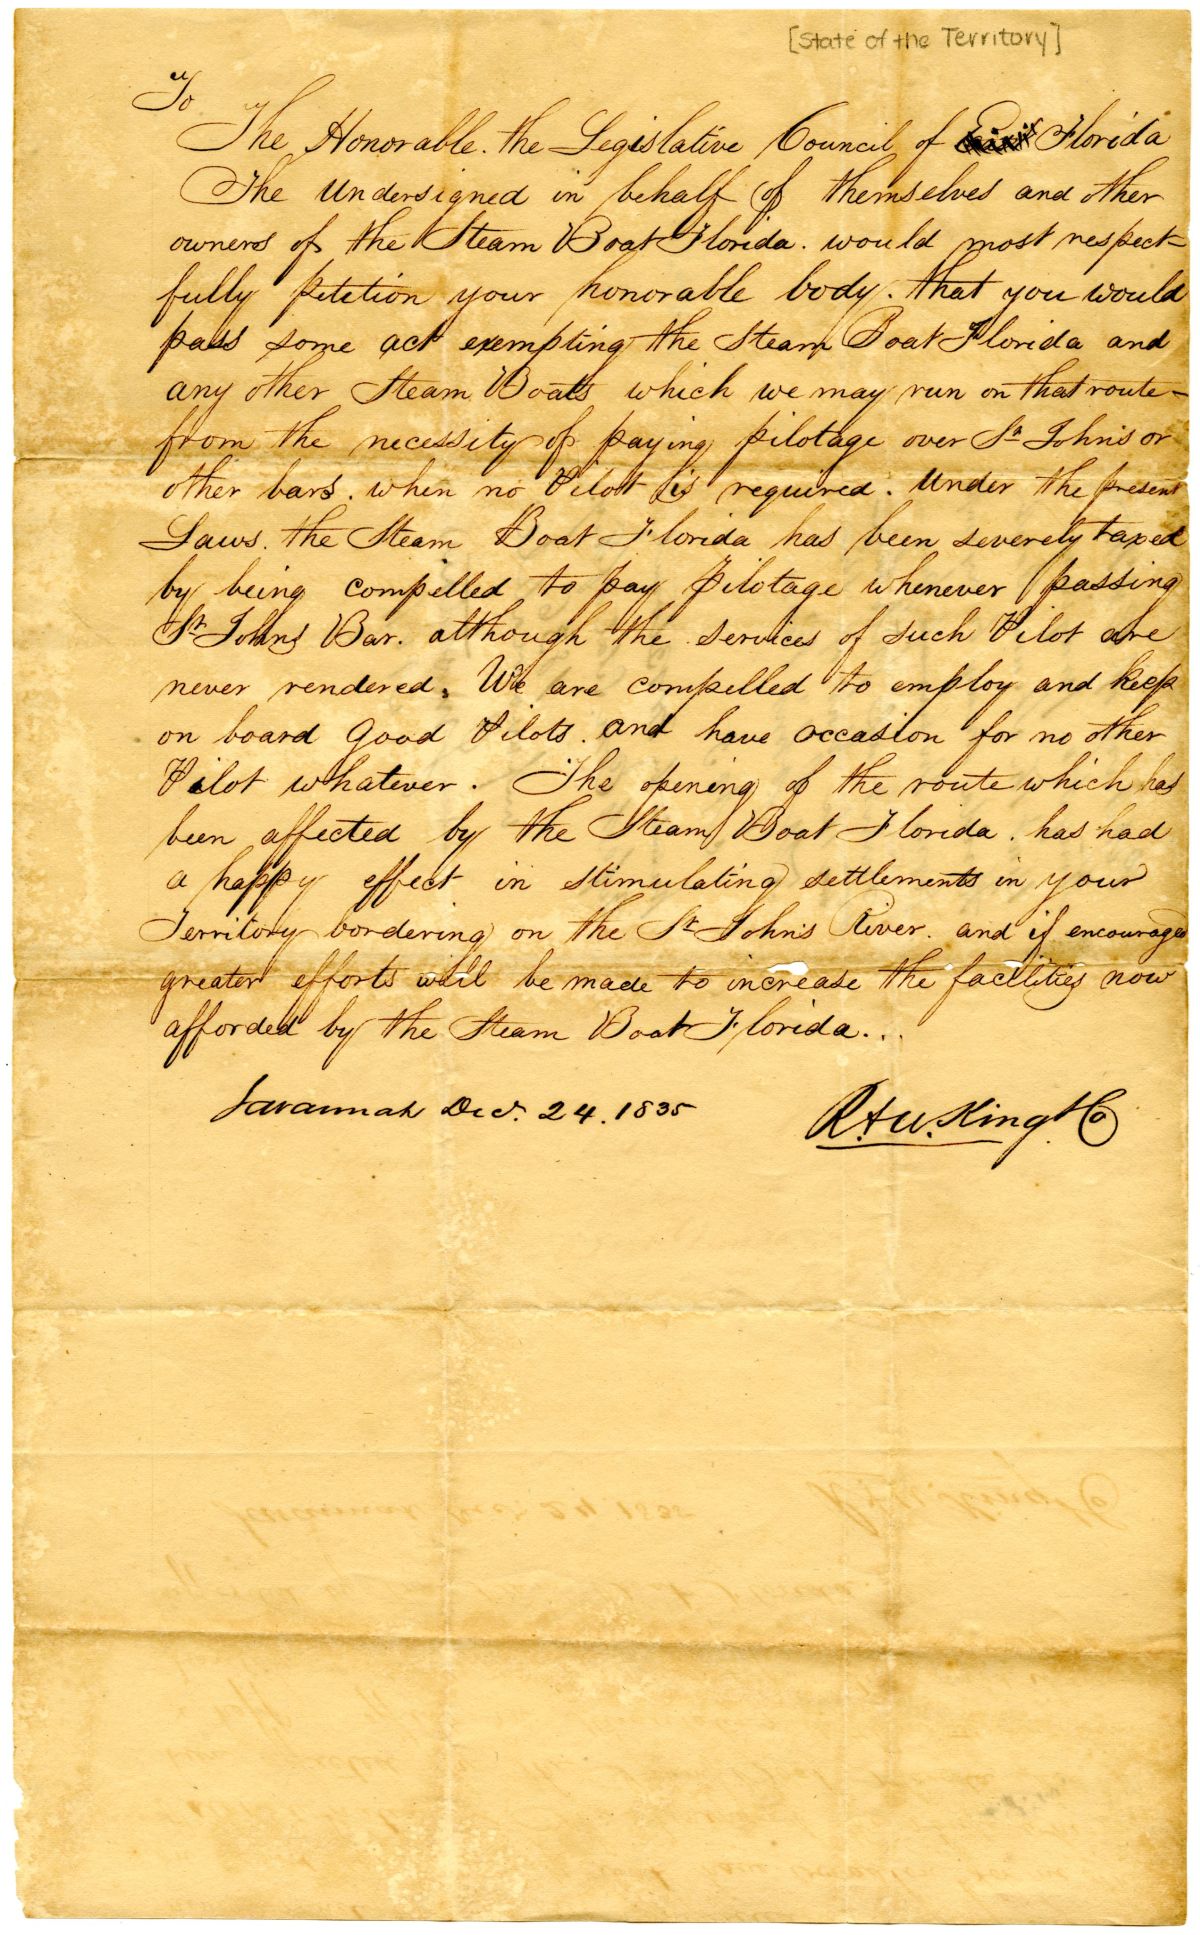 [State of the Territory]
To
The Honorable. the Legislative Council of Florida
The Undersigned in behalf of themselves and other
owners of the Steam Boat Florida. would most respect=
fully petition your honorable body. that you would
pass some act exempting the Steam Boat Florida and
any other Steam Boats which we may run on that route-
from the necessity of paying pilotage over St Johns or
other bars. when no Pilot is required. Under the present
Laws. the Steam Boat Florida has been severely taxed
by being compelled to pay Pilotage whenever passing
St Johns Bar. although the services of such Pilot are
never rendered. We are compelled to employ and keep
on board Good Pilots. and have occasion for no other
Pilot whatever. The opening of the route which has
been affected by the Steam Boat Florida. has had
a happy effect in stimulating settlements in your
Territory bordering on the St Johns River. and if encouraged
greater efforts will be made to increase the facilities now
afforded by the Steam Boat Florida...
Savannah Decr. 24. 1835
R & W. King & Co